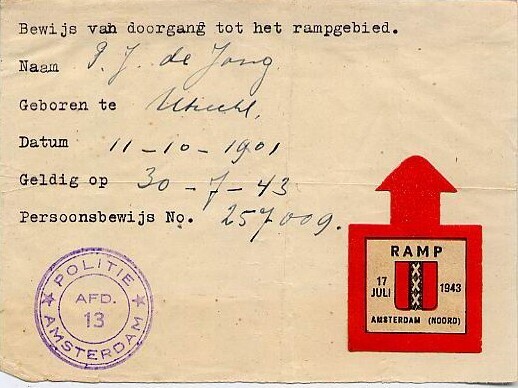 Bewijs van doorgang tot het rampgebied.
Naam P. J. de Jong
Geboren te Utrecht,
Datum 11-10-1901
Geldig op 30-7-43
Persoonsbewijs No. 257009.
POLITIE
AFD.
13
AMSTERDAM
RAMP
17 JULI 1943
AMSTERDAM (NOORD)